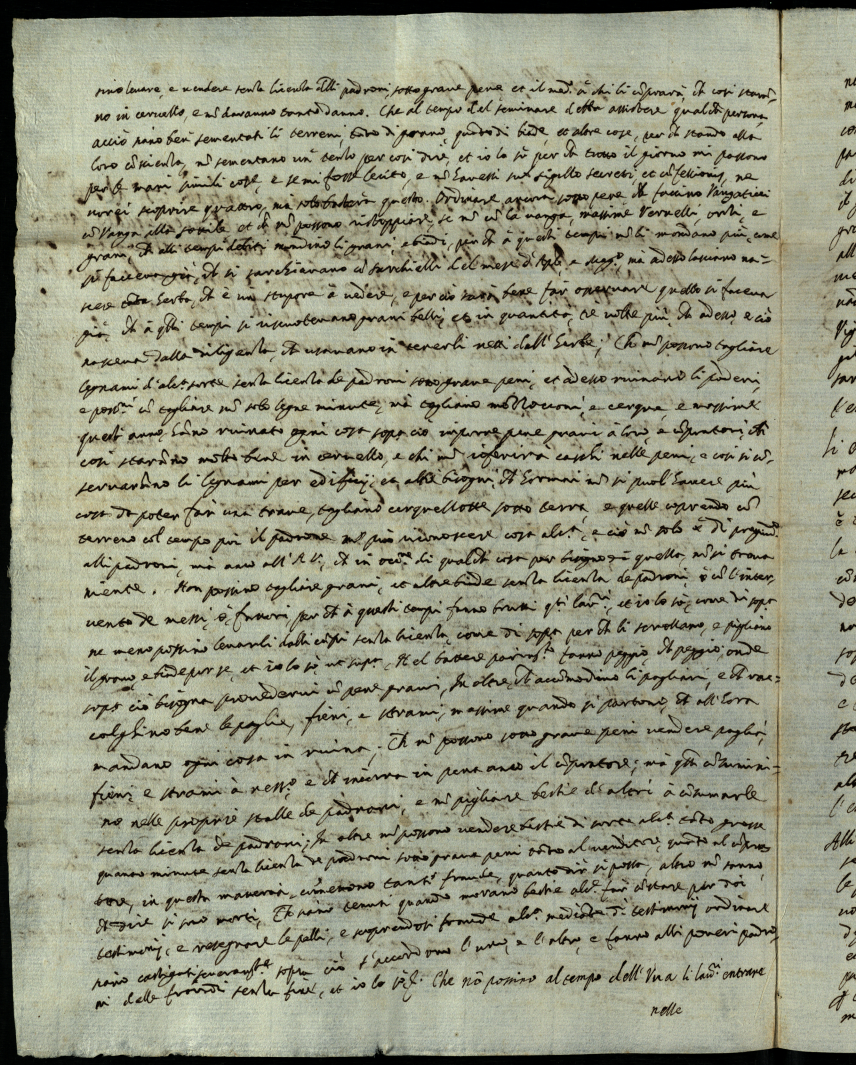 sino levare, e vendere senza licenza delli padroni sotto grave pene et il med.º à chi li cōprarà, ch così staran̄
no in cervello, e nō daranno tanto danno. Che al tempo del seminare debba assistere qualch persona
acciò siano ben sementati li terreni, tanto di grano, quanto di biade, et altre cose, per ch stando alla
loro cōscienza, nō sementano un terzo per così dire, et io lo sò per ch tutto il giorno mi passono
per le mani simili cose, e se mi fosse lecito, e nō havessi sub sigillo secreti et cōfessionis, ne
vorrei scoprire quattro, ma solo basta questo. Ordinare ancora sotto pene ch faccino Vangaticci
cō Vanga alla sottile et ch nō possono ristoppiare, se nō cō la vanga, massime Vernelli, orzi, e
grani, ch alli tempi debiti mondino li grani, e biade, per ch à questi tempi nō li mondano più, come
si faceva già, ch si sarchiavano cō sarchielli del mese d'Aple e Magº, ma adesso lasciano na=
scere tanta herba, ch è un stupore à vedere, e per ciò saria bene far osservare quello si faceva
già, ch à qlli tempi si riscuotevano grani belli, et in quantità, trè volte più, ch adesso, e ciò
nasceva dalla diligenza, ch usavano in tenerli netti dall'herbe; Che nō possino tagliare
legnami d'alc.ª sorte senza licenza de padroni sotto grave peni, et adesso ruinano li poderi,
e possni cō tagliare nō solo legne minute, mà tagliano mōtoncioni, e cerque, e massime
questi anno, hāno ruinato ogni cosa sopra ciò imporre pene gravi à loro, e cōpratori, ch
così starāno molto bene in cervello, e chi nō riferirà caschi nelle peni, e così si cō=
servarāno li legnami per edificij, et altri bisogni, ch hormai nō si puol havere più
cosa da poter far una trave, tagliano cerquellotte sotto terra e quelle coprendo cō
terreno col tempo poi il padrone nō può riconoscere cosa alc.ª, e ciò nō solo è di pregiud.º
alli padroni, mà anco all' R.P., ch in occ.ne di qualch cosa per bisogno di quella, nō si trova
niente. Non possino tagliare grani, et altre biade senza licenza de padroni ò cō l'inter=
vento de messi, ò fattori, per ch à questi tempi fanno brutti qsti lav.ri, et io lo sò, come di sopra
ne meno possino levarli dalli cāpi senza licenza, come di sopra per ch li scrollano, e pigliano
il grano, e biade per se, et io lo sò ut supra, Nel battere parim.te fanno peggio, ch peggio; onde
sopra ciò bisogna provederci cō pene gravi, In oltre, ch accōmodino li pagliari, e ch rac=
colghino bene le paglie, fieni, e strami, massime quando si partono, ch all'hora
mandano ogni cosa in ruina; Ch nō possono sotto grave peni vendere paglia,
fieni, e strami à ness.º e ch incorra in pena anco il cōpratore; mà qsti cōsumini=
no nelle proprie stalle de padroni, e nō pigliare bestie di altri à cōsumarle
senza licenza de padroni; In oltre nō possono vendere bestie di sorte alc.ª tanto grosse
quanto minute senza licenza de padroni sotto grave peni tanto al venditore, quanto al cōpra=
tore, in questa maniera, cōmettono tante fraude, quanto dir si possa, altro nō sanno
ch dire si sono morti, Ch siano tenuti quando morano bestie alc.ª far cōstare per doi
testimonij, e resegnare le pelli, e scoprendosi fraude alc.ª mediante di testimonij ordinare
siano castigati severam.te sopra ciò s'accordono l'uno, e l'altro, e fanno alli poveri padro=
ni delle fraudi senza fine, et io lo sò. Che nō possino al tempo dell'Uva li lav.ri entrare
nelle